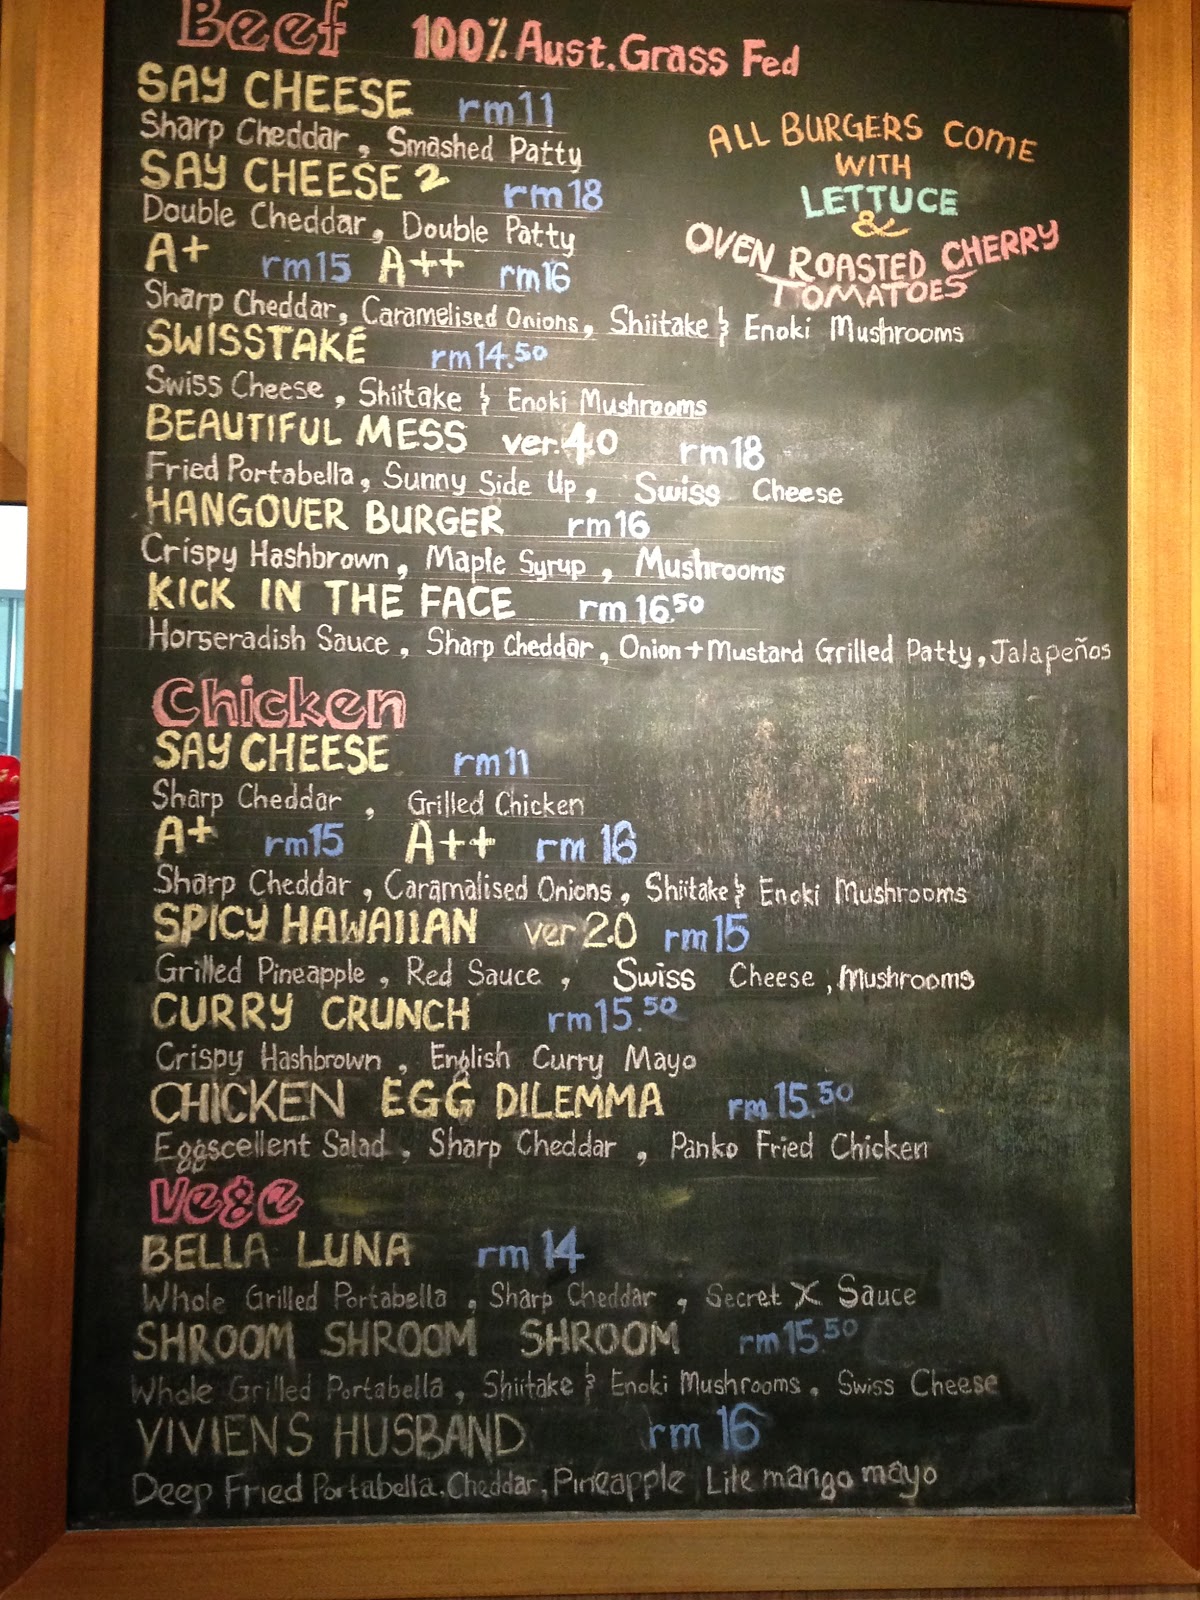 Beef 100% Aust. Grass Fed
SAY CHEESE rm11
Sharp Cheddar, Smashed Patty
SAY CHEESE 2 rm18
Double Cheddar, Double Patty
A+ rm15 A++ rm16
Sharp Cheddar, Caramelised Onions, Shiitake & Enoki Mushrooms
ALL BURGERS COME
WITH
LETTUCE
&
OVEN ROASTED CHERRY
TOMATOES
SWISSTAKE rm14.50
Swiss Cheese, Shiitake & Enoki Mushrooms
BEAUTIFUL MESS ver.4.0 rm18
Fried Portabella, Sunny Side Up, Swiss Cheese
HANGOVER BURGER rm16
Crispy Hashbrown, Maple Syrup, Mushrooms
KICK IN THE FACE rm16.50
Horseradish Sauce, Sharp Cheddar, Onion + Mustard Grilled Patty, Jalapeños
Chicken
SAY CHEESE rm11
Sharp Cheddar, Grilled Chicken
A+ rm15 A++ rm 16
Sharp Cheddar, Caramalised Onions, Shiitake & Enoki Mushrooms
SPICY HAWAIIAN ver 2.0 rm15
Grilled Pineapple, Red Sauce, Swiss Cheese, Mushrooms
CURRY CRUNCH rm15.50
Crispy Hashbrown, English Curry Mayo
CHICKEN EGG DILEMMA rm15.50
Eggscellent Salad, Sharp Cheddar, Panko Fried Chicken
Vege
BELLA LUNA rm14
Whole Grilled Portabella, Sharp Cheddar, Secret X Sauce
SHROOM SHROOM SHROOM rm15.50
Whole Grilled Portabella, Shiitake & Enoki Mushrooms, Swiss Cheese
VIVIENS HUSBAND rm 16
Deep Fried Portabella, Cheddar, Pineapple, Lite mango mayo